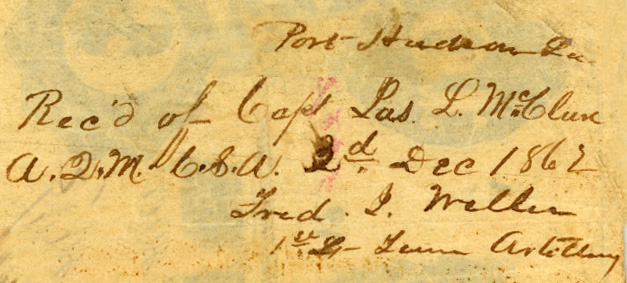 Port Hudson La
Rec'd of Capt Jas. L. McClure
A.Q.M. C.S.A. 2d. Dec 1862
Fred. J. Weller
1st Lt Tenn Artillery